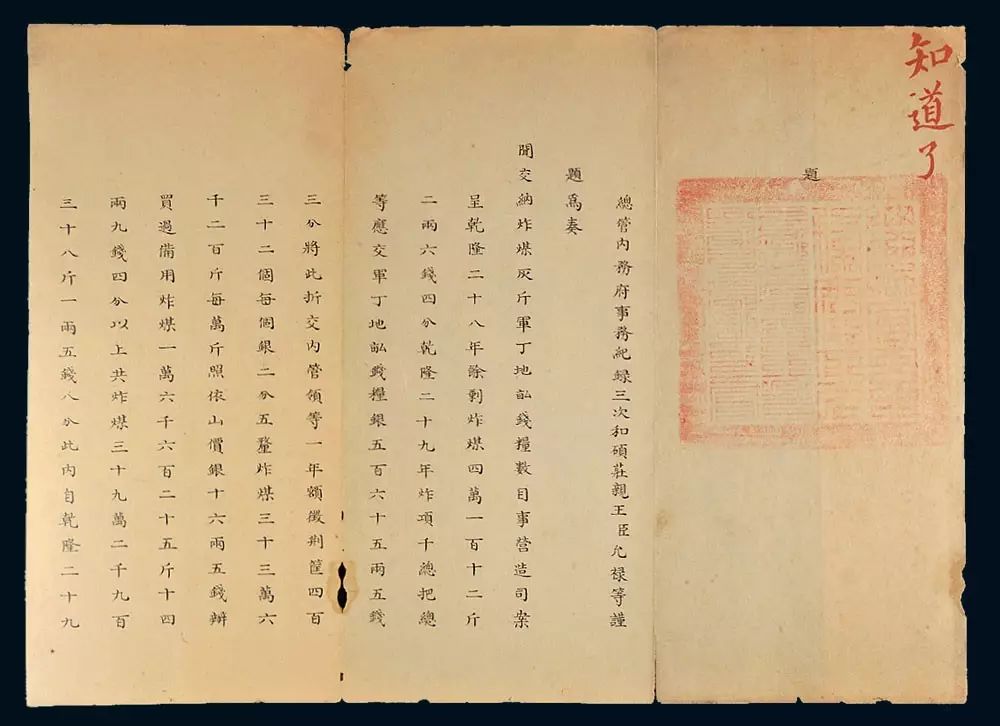 知道了
題
總管內務府事務紀錄三次和碩莊親王臣允祿等謹
題爲奏
聞交納炸煤灰斤軍丁地畝錢糧數目事營造司案
呈乾隆二十八年餘剩炸煤四萬一百十二斤
二兩六錢四分乾隆二十九年炸項千總把總
等應交軍丁地畝錢糧銀五百六十五兩五錢
三分將此折交內管領等一年額徵荊筐四百
三十二個每個銀二分五釐炸煤三十三萬六
千二百斤每萬斤照依山價銀十六兩五錢辦
買過備用炸煤一萬六千六百二十五斤十四
兩九錢四分以上共炸煤三十九萬二千九百
三十八斤一兩五錢八分此內自乾隆二十九